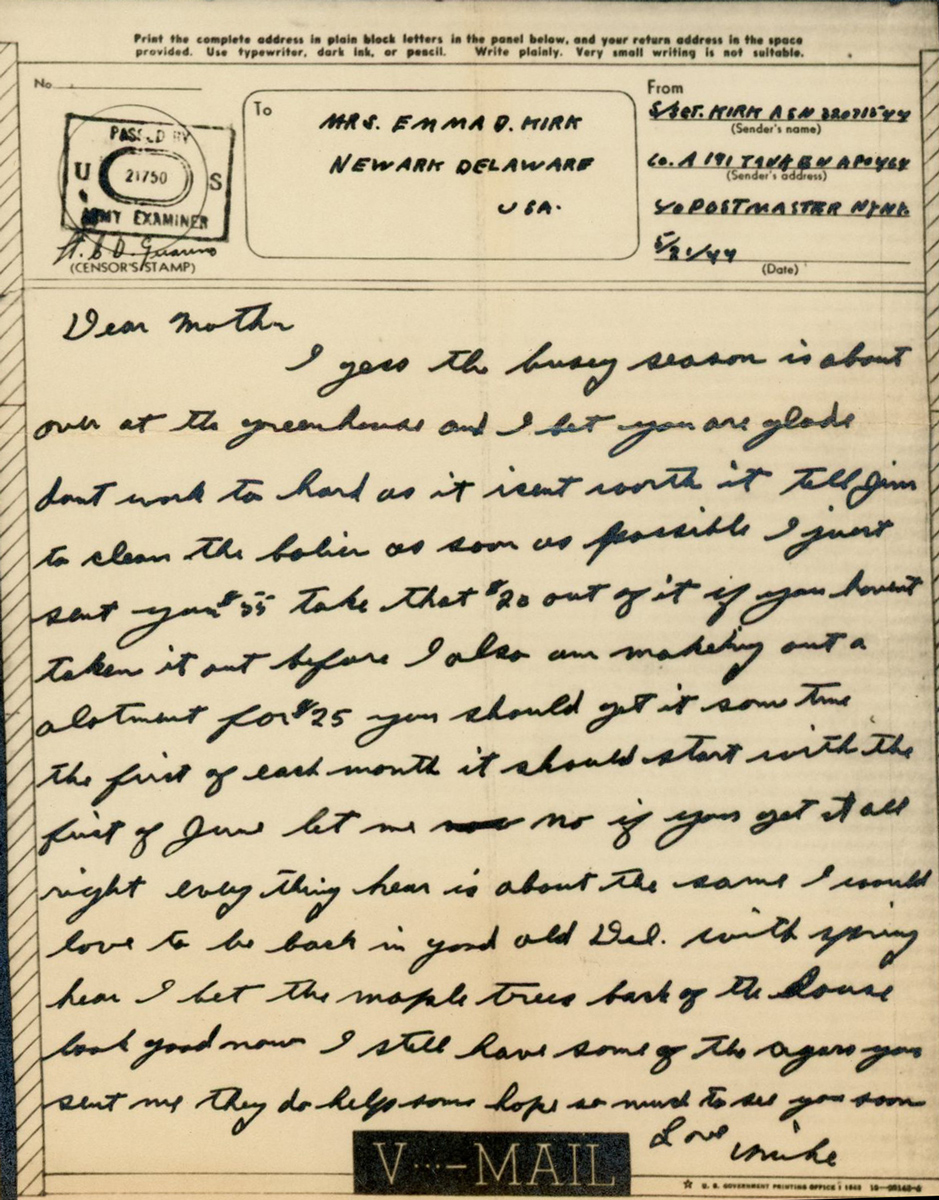 Print the complete address in plain block letters in the panel below, and your return address in the space
provided. Use typewriter, dark ink, or pencil. Write plainly. Very small writing is not suitable.
No.
PASSED BY
U S
21750
ARMY EXAMINER
(CENSOR'S STAMP)
To
MRS. EMMA D. KIRK
NEWARK DELAWARE
USA.
From
S/SGT. KIRK ASN
(Sender's name)
Co. A 191 TANK BN APO 464
(Sender's address)
c/o POSTMASTER NYNY
5/21/44
(Date)
Dear Mother
I gess the busey season is about
over at the greenhouse and I bet you are glade
dont work to hard as it isent worth it tell Jim
to clean the bolier as soon as possible I just
sent you $55 take that $20 out of it if you havent
taken it out before I also am makeing out a
alotment for $25 you should get it some time
the first of each month it should start with the
first of June let me no if you get it all
right every thing hear is about the same I would
love to be back in good old Del. with spring
hear I bet the maple trees back of the house
look good now I still have some of the cigars you
sent me they do help some hope so much to see you soon
Love Mike
V···—MAIL
☆ U. S. GOVERNMENT PRINTING OFFICE : 1943